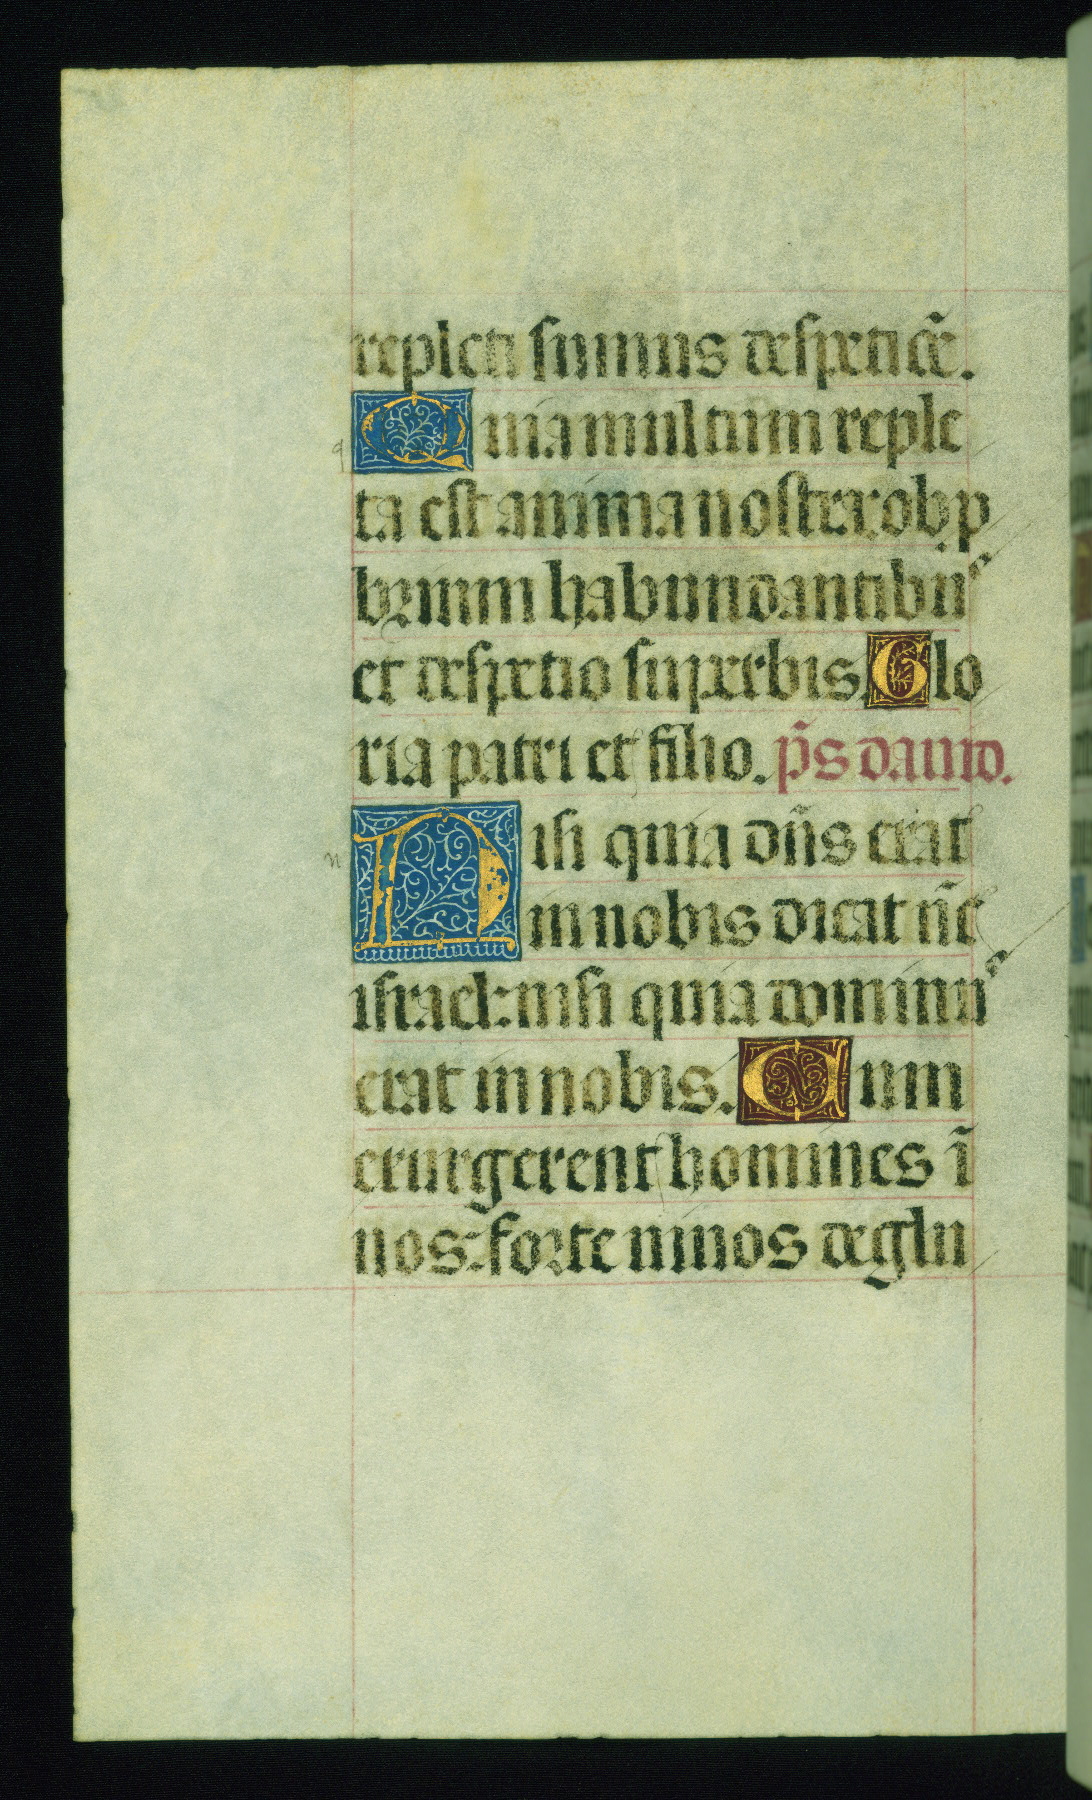 repleti sumus despectiõe.
Quia multum reple
ta est anima nostra: obp
brium habundantibus
et despectio superbis. Glo
ria patri et filio. p̃s dauid.
q
Nisi quia dñs erat
n
in nobis dicat ñc
israel: nisi quia dominus
erat in nobis. Cum
exurgerent homines ĩ
nos: forte uiuos deglu